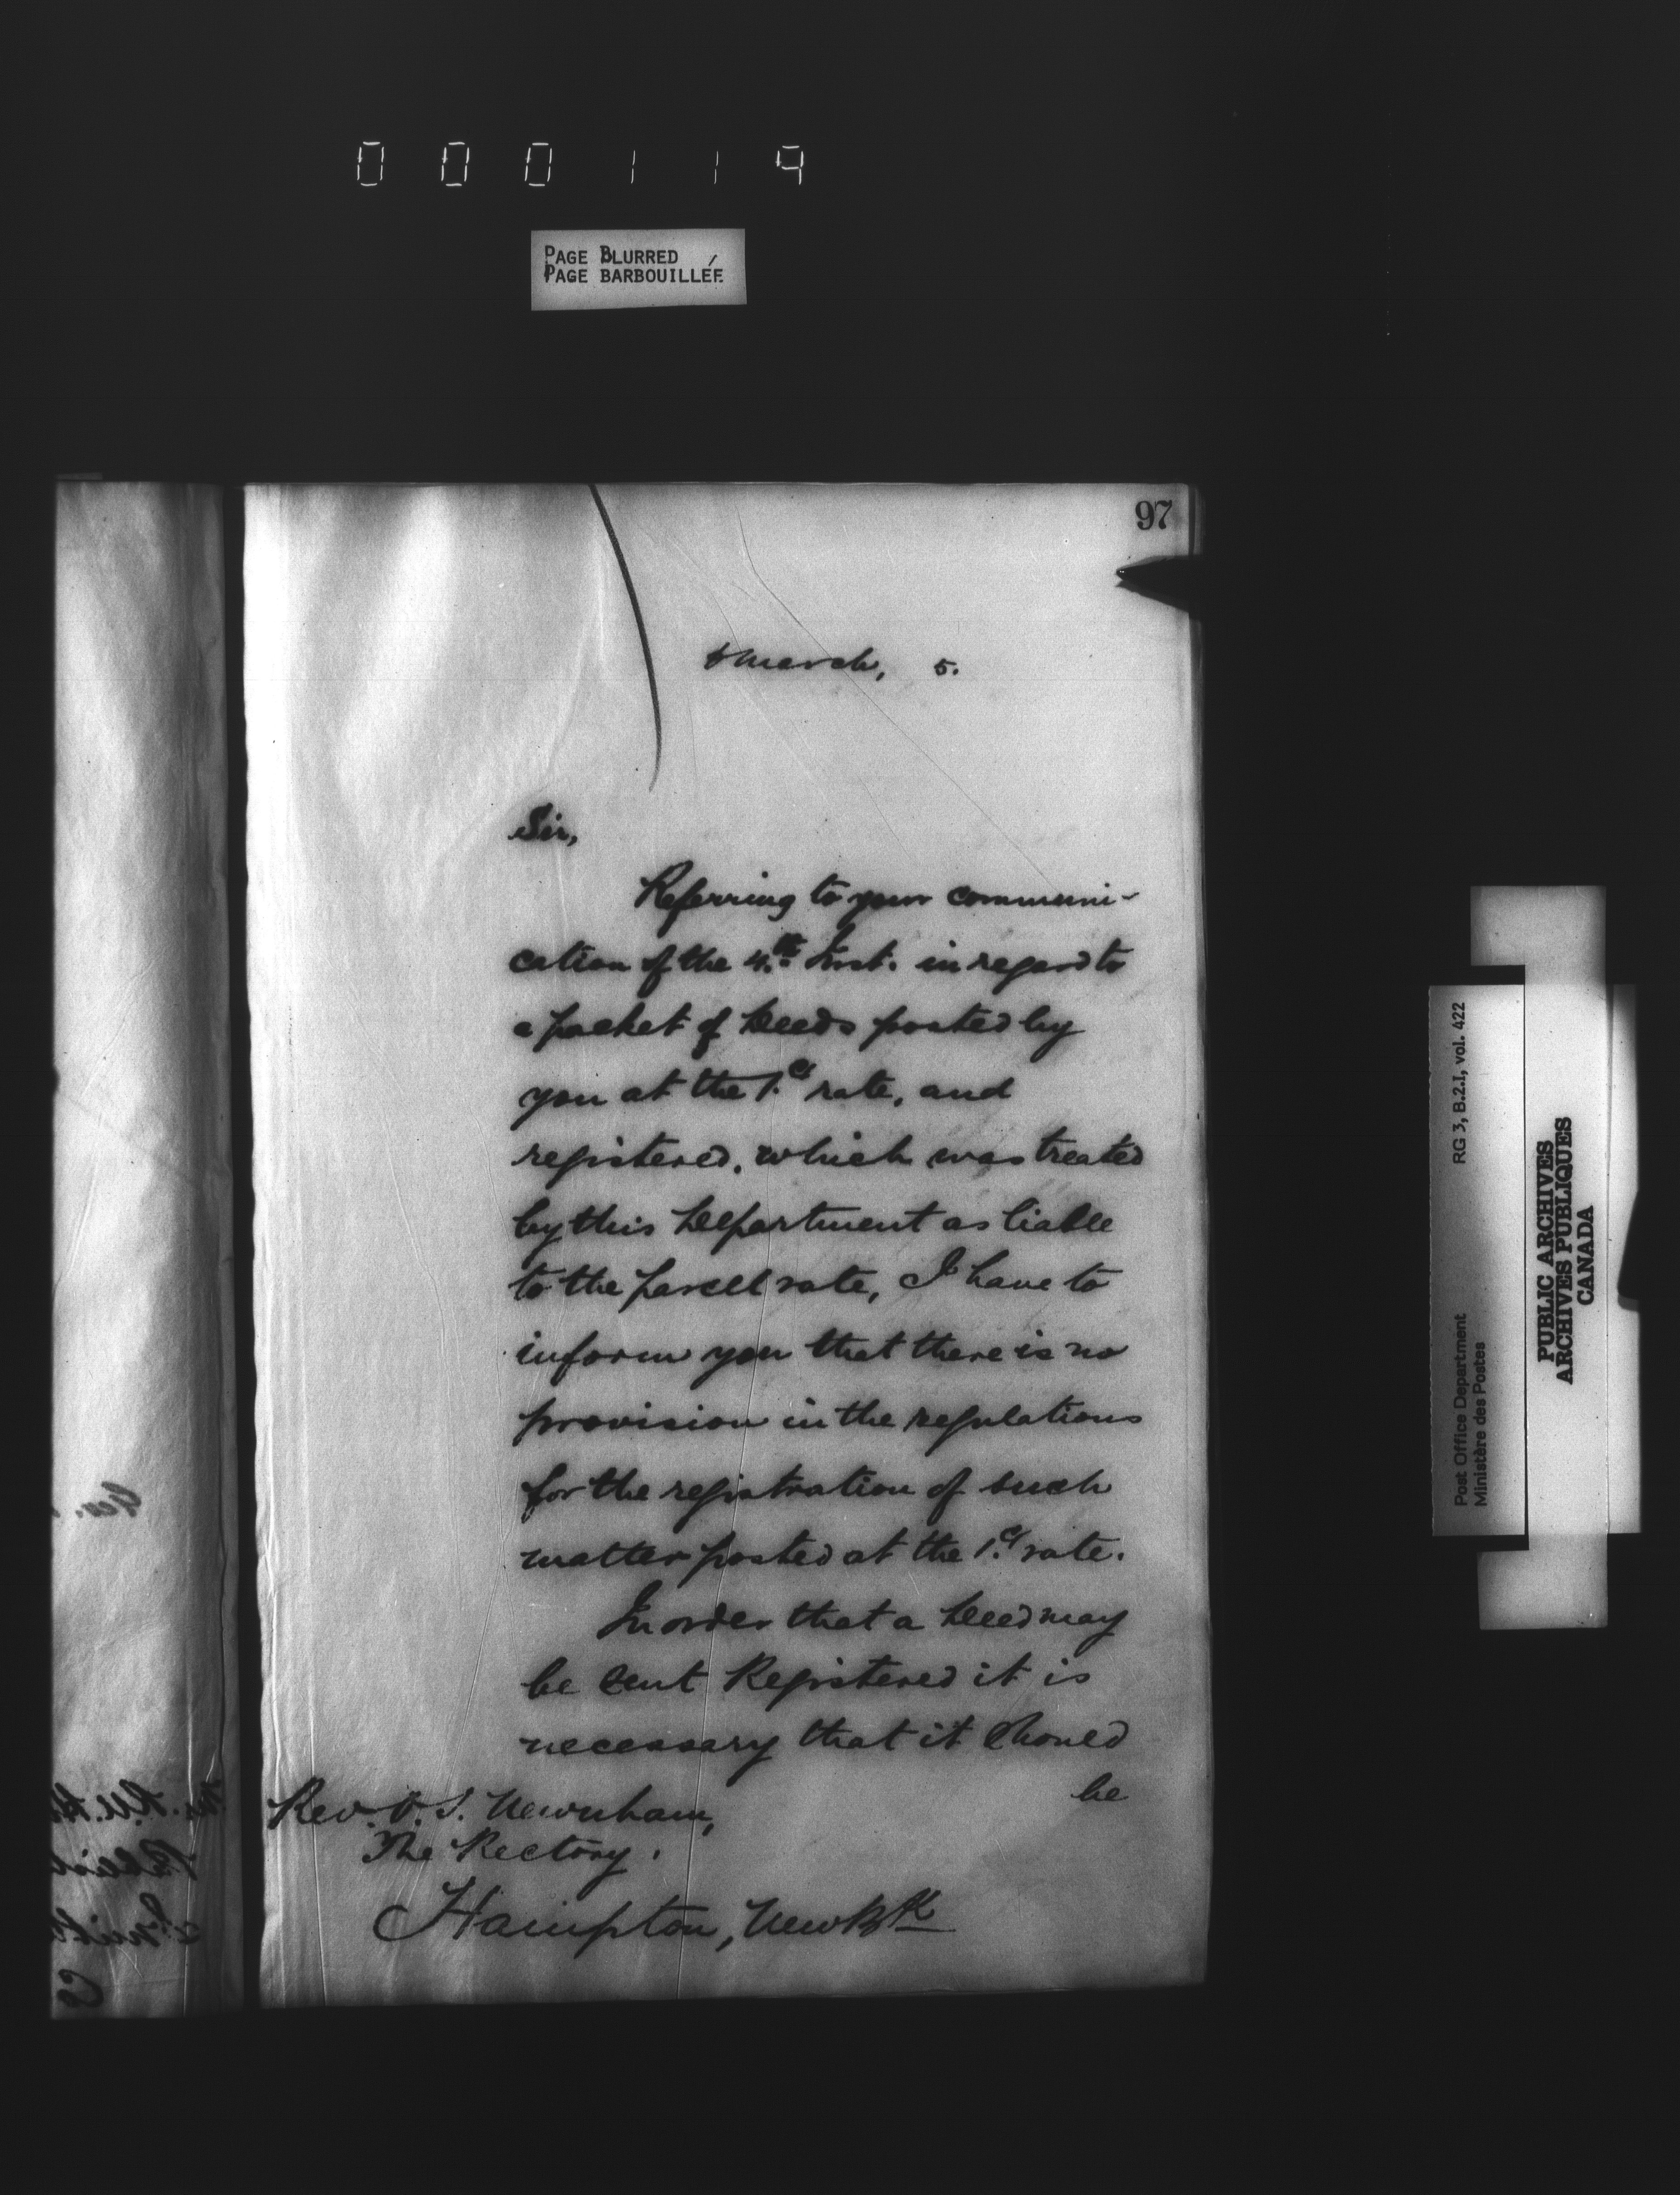 000119
PAGE BLURRED
PAGE BARBOUILLÉE
97
March, 5.
Sir,
Referring to your communi-
cation of the 4.th Inst. in regard to
a packet of Deeds posted by
you at the 1.c rate, and
registered, which was treated
by this Department as liable
to the parcel rate, I have to
inform you that there is no
provision in the regulations
for the registration of such
matter posted at the 1.c rate.
In order that a Deed may
be sent Registered it is
necessary that it should
be
Rev. S. Newnham,
The Rectory.
Hampton, New Bk
Post Office Department RG 3, B.2.I, vol. 422
Ministère des Postes
PUBLIC ARCHIVES
ARCHIVES PUBLIQUES
CANADA